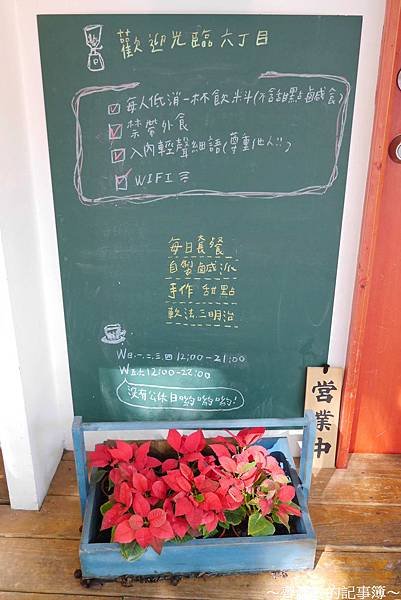 歡迎光臨六丁目
每人低消一杯飲料(不含甜點鹹食)
禁帶外食
入內輕聲細語(尊重他人!!)
WIFI
每日套餐
自製鹹派
手作 甜點
軟法三明治
W日.一.二.三.四 12:00-21:00
W五.六 12:00-22:00
沒有公休日喲喲喲喲!
営業中
的記事簿~